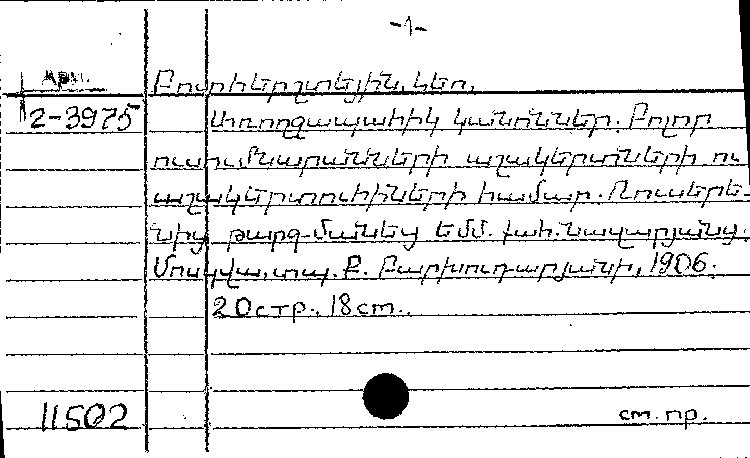 -1-
Арм.
2-3975
Առողջապահիկ կանոններ. Բոլոր
ուսումնարանների աշակերտների ու
աշակերտուհիների համար. Ռուսերե-
նից թարգմանեց Նավասարդյանց.
Մոսկվա, տպ. Բարխուդարյանի, 1906.
20стр., 18cm.
11502
cm. пр.